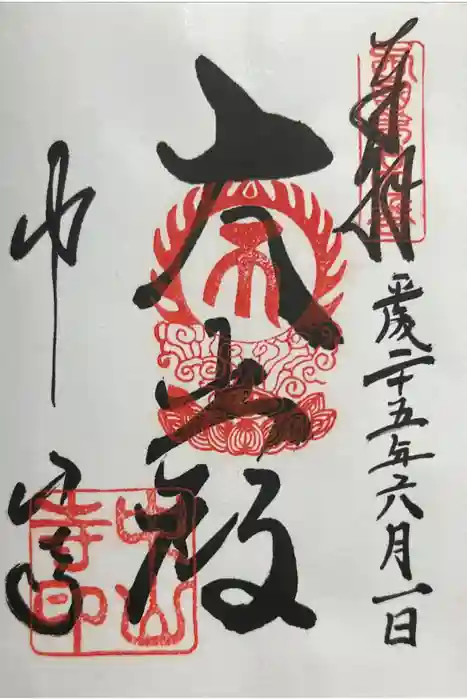 奉拝
平成二十五年六月一日
大悲殿
中山寺
中山寺印